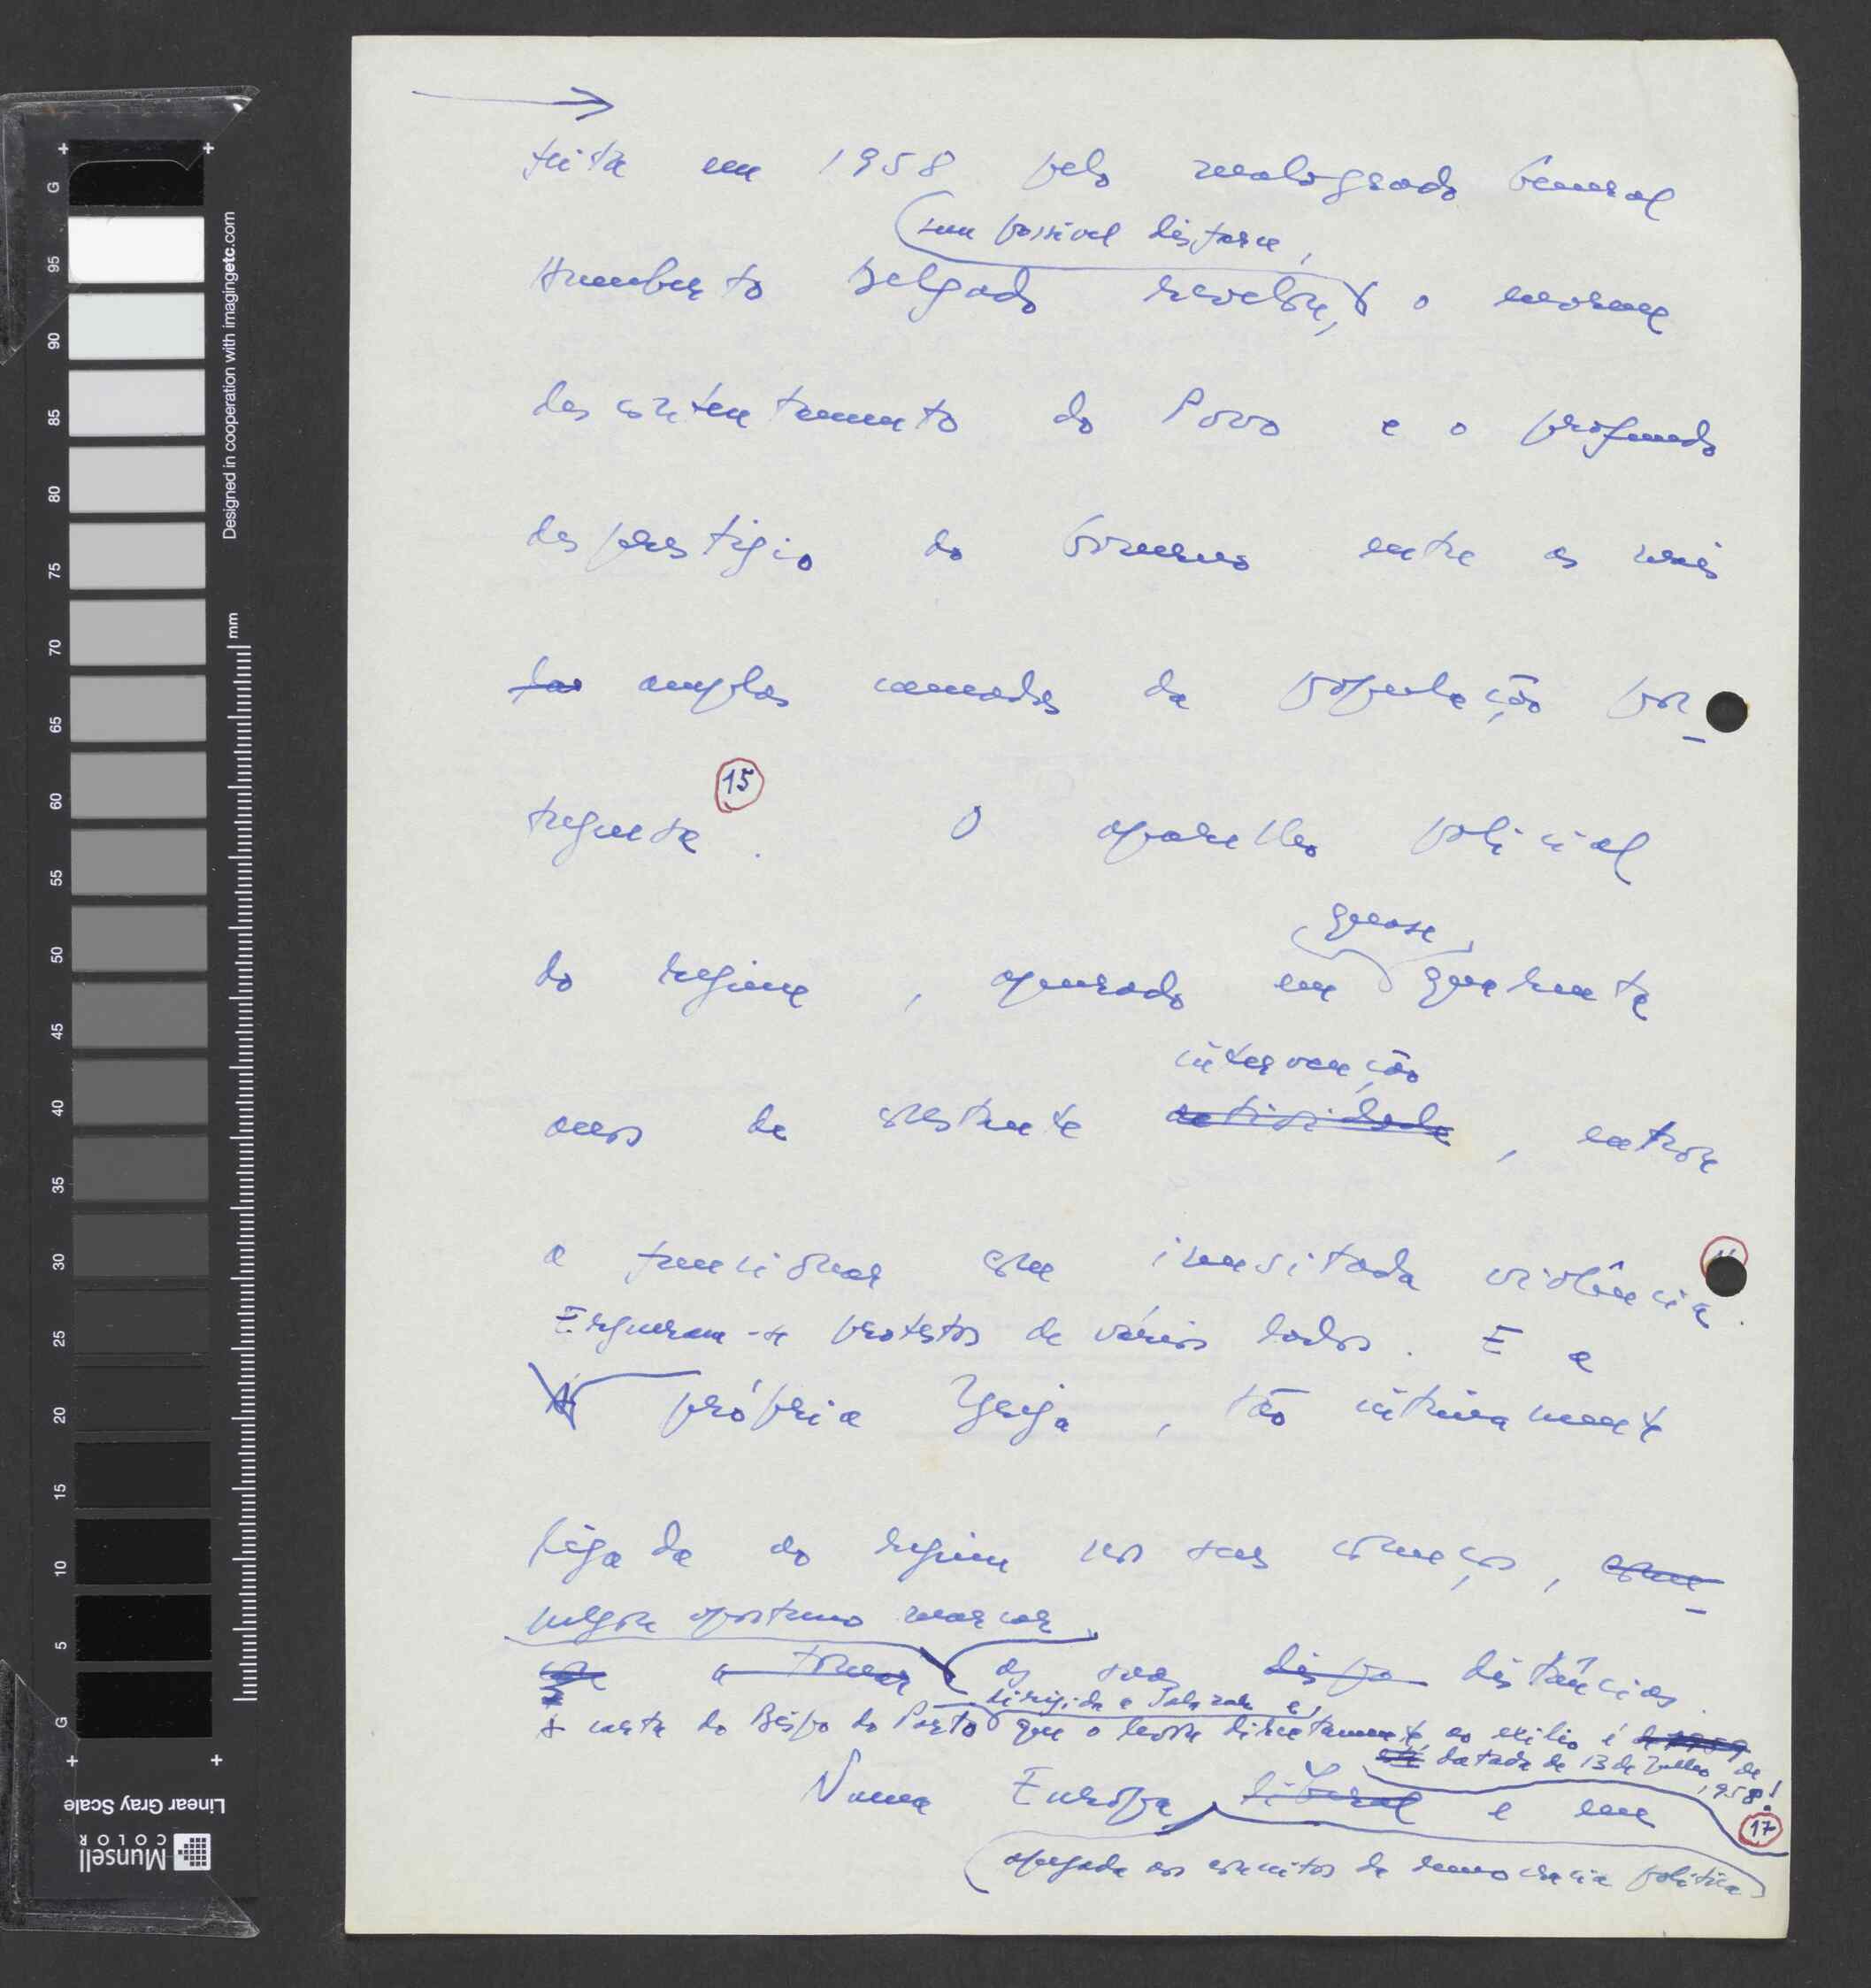 feita em 1958 pelo malogrado General
sem possível disfarce,
Humberto Delgado revelou, o enorme
descontentamento do Povo e o profundo
desprestígio do Governo entre as mais
das amplas camadas da população por-
15
tuguesa. O aparelho policial
quase
do regime, apurado em quarenta
intervenção
anos de constante actividade, entrou
a funcionar com inusitada violência.
Ergueram-se protestos de vários lados. E a
A própria Igreja, tão intimamente
ligada ao regime nos seus começos, com
julgou oportuno marcar
a tomar as suas distâncias.
dirigida a Salazar e,
A carta do Bispo do Porto que o levou directamente ao exílio é de 1959
datada de 13 de Julho de
1958!
Numa Europa liberal e em
17
apegada aos conceitos da democracia política
Designed in cooperation with imagingetc.com
mm
G 95 90 85 80 75 70 65 60 55 50 45 40 35 30 25 20 15 10 5 G
Linear Gray Scale
Munsell
COLOR